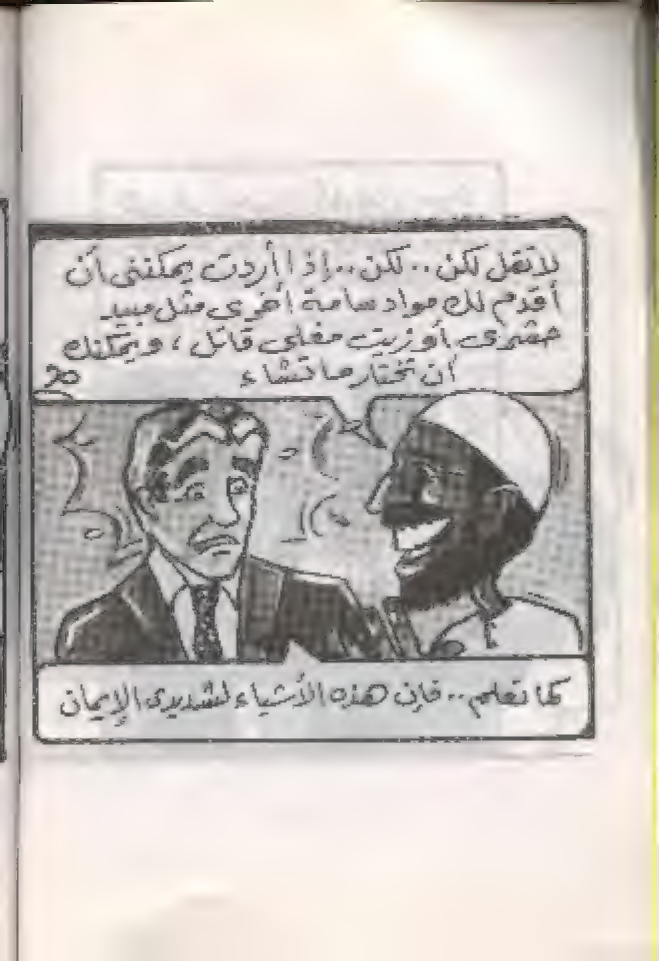 لا تقل لكن .. لكن .. إذا أردت يمكننى أن
أقدم لك مواد سامة أخرى مثل مبيد
حشرى أو زيت مغلى قاتل ، ويمكنك
أن تختار ما تشاء
كما تعلم .. فإن هذه الأشياء لشديدى الإيمان